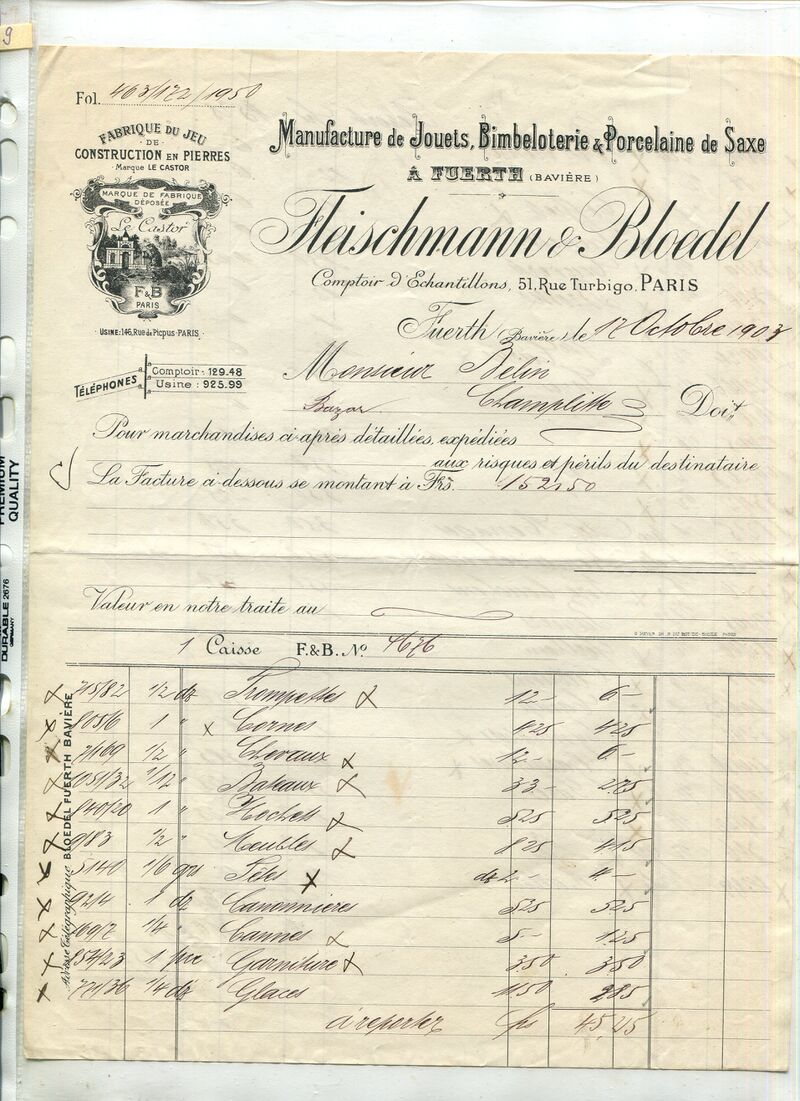 9
Fol. 463/172/1950
FABRIQUE DU JEU
- DE -
CONSTRUCTION EN PIERRES
Marque LE CASTOR
MARQUE DE FABRIQUE
DÉPOSÉE
Le Castor
F&B
PARIS
USINE: 146, Rue de Picpus - PARIS
TÉLÉPHONES
Comptoir : 129.48
Usine : 925.99
Manufacture de Jouets, Bimbeloterie & Porcelaine de Saxe
À FUERTH (BAVIÈRE)
Fleischmann & Bloedel
Comptoir d'Echantillons, 51, Rue Turbigo, PARIS
Fuerth (Bavière), le 12 Octobre 1903
Monsieur Bélin
Bazar Champlitte Doit
Pour marchandises ci-après détaillées, expédiées
aux risques et périls du destinataire
La Facture ci-dessous se montant à Frs. 152.50
Valeur en notre traite au
1 Caisse F.&B. No. 4676
715/82 1/2 dz Trompettes 12 - 6 -
805/6 1 " Cornes 4 25 4 25
1/2 " Chevaux 12 - 6 -
1051/32 1/12 " Bateaux 33 - 2 75
940/20 1 " Hochets 5 25 5 25
9/83 1/2 " Meubles 8 25 4 15
5140 1/6 grs Têtes dz 2 - 4 -
92/4 1 dz Canonnières 5 25 5 25
69/2 1/4 " Cannes 5 - 1 25
854/23 1 pce Garniture 3 50 3 50
771/36 1/4 dz Glaces 11 50 2 85
à reporter frs 45,25
Adresse Télégraphique BLOEDEL FUERTH BAVIÈRE
PREMIUM
QUALITY
DURABLE 2676
GERMANY